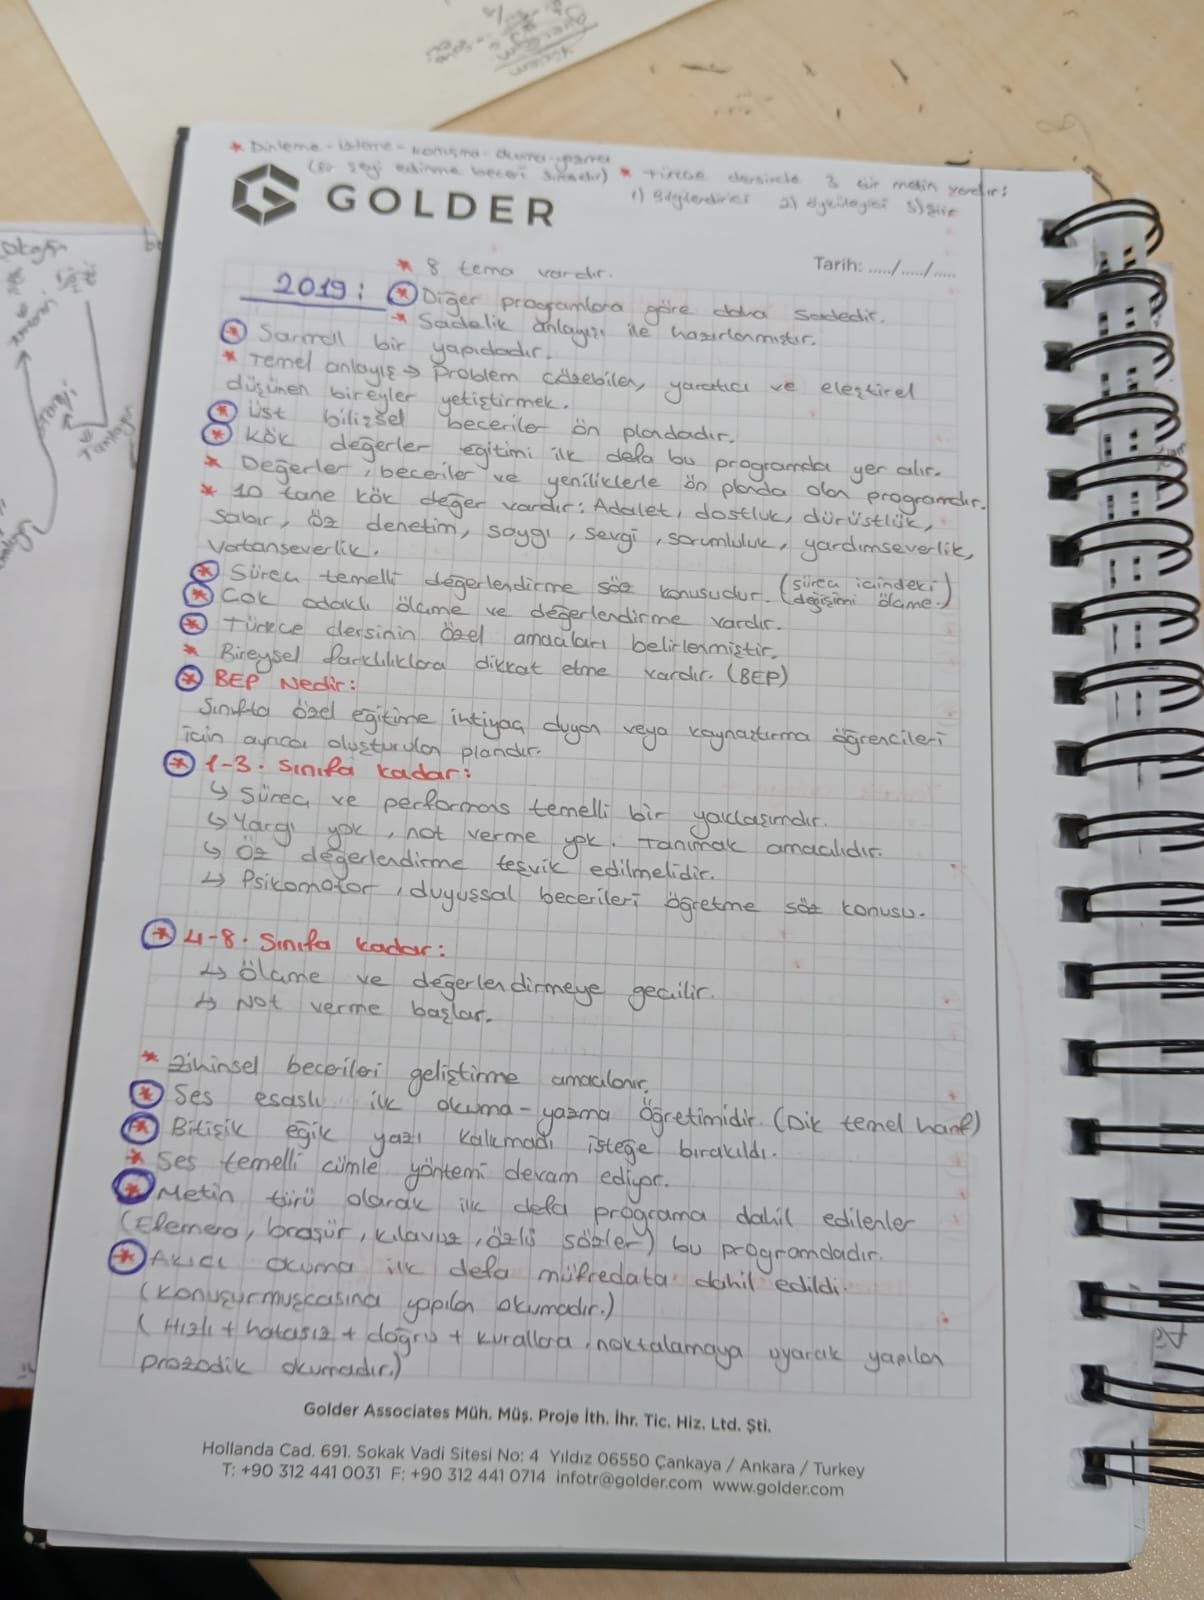 * Dinleme-izleme-konuşma-okuma-yazma
(Bir şeyi edinme beceri sırasıdır) * Türkçe dersinde 3 tür metin vardır:
1) Bilgilendirici 2) öyküleyici 3) Şiir
GOLDER
Tarih: ...../...../.....
* 8 tema vardır.
2019: * Diğer programlara göre daha sadedir.
* Sadelik anlayışı ile hazırlanmıştır.
* Sarmal bir yapıdadır.
* Temel anlayış → Problem çözebilen, yaratıcı ve eleştirel
düşünen bireyler yetiştirmek.
* Üst bilişsel beceriler ön plandadır.
* Kök değerler eğitimi ilk defa bu programda yer alır.
* Değerler, beceriler ve yeniliklerle ön planda olan programdır.
* 10 tane kök değer vardır: Adalet, dostluk, dürüstlük,
sabır, öz denetim, saygı, sevgi, sorumluluk, yardımseverlik,
vatanseverlik.
* Süreç temelli değerlendirme söz konusudur. (süreç içindeki
değişimi ölçme.)
* Çok odaklı ölçme ve değerlendirme vardır.
* Türkçe dersinin özel amaçları belirlenmiştir.
* Bireysel farklılıklara dikkat etme vardır. (BEP)
* BEP Nedir:
Sınıfta özel eğitime ihtiyaç duyan veya kaynaştırma öğrencileri
için ayrıca oluşturulan plandır.
* 1-3. Sınıfa kadar:
↳ Süreç ve performans temelli bir yaklaşımdır.
↳ Yargı yok, not verme yok. Tanımak amaçlıdır.
↳ Öz değerlendirme teşvik edilmelidir.
↳ Psikomotor, duyuşsal becerileri öğretme söz konusu.
* 4-8. Sınıfa kadar:
↳ Ölçme ve değerlendirmeye geçilir.
↳ Not verme başlar.
* Zihinsel becerileri geliştirme amaçlanır.
* Ses esaslı ilk okuma-yazma öğretimidir. (Dik temel harf)
* Bitişik eğik yazı kalkmadı isteğe bırakıldı.
* Ses temelli cümle yöntemi devam ediyor.
* Metin türü olarak ilk defa programa dahil edilenler
(Efemera, broşür, kılavuz, özlü sözler) bu programdadır.
* Akıcı okuma ilk defa müfredata dahil edildi.
(Konuşurmuşçasına yapılan okumadır.)
(Hızlı + hatasız + doğru + kurallara, noktalamaya uyarak yapılan
prozodik okumadır.)
Golder Associates Müh. Müş. Proje İth. İhr. Tic. Hiz. Ltd. Şti.
Hollanda Cad. 691. Sokak Vadi Sitesi No: 4 Yıldız 06550 Çankaya / Ankara / Turkey
T: +90 312 441 0031 F: +90 312 441 0714 infotr@golder.com www.golder.com